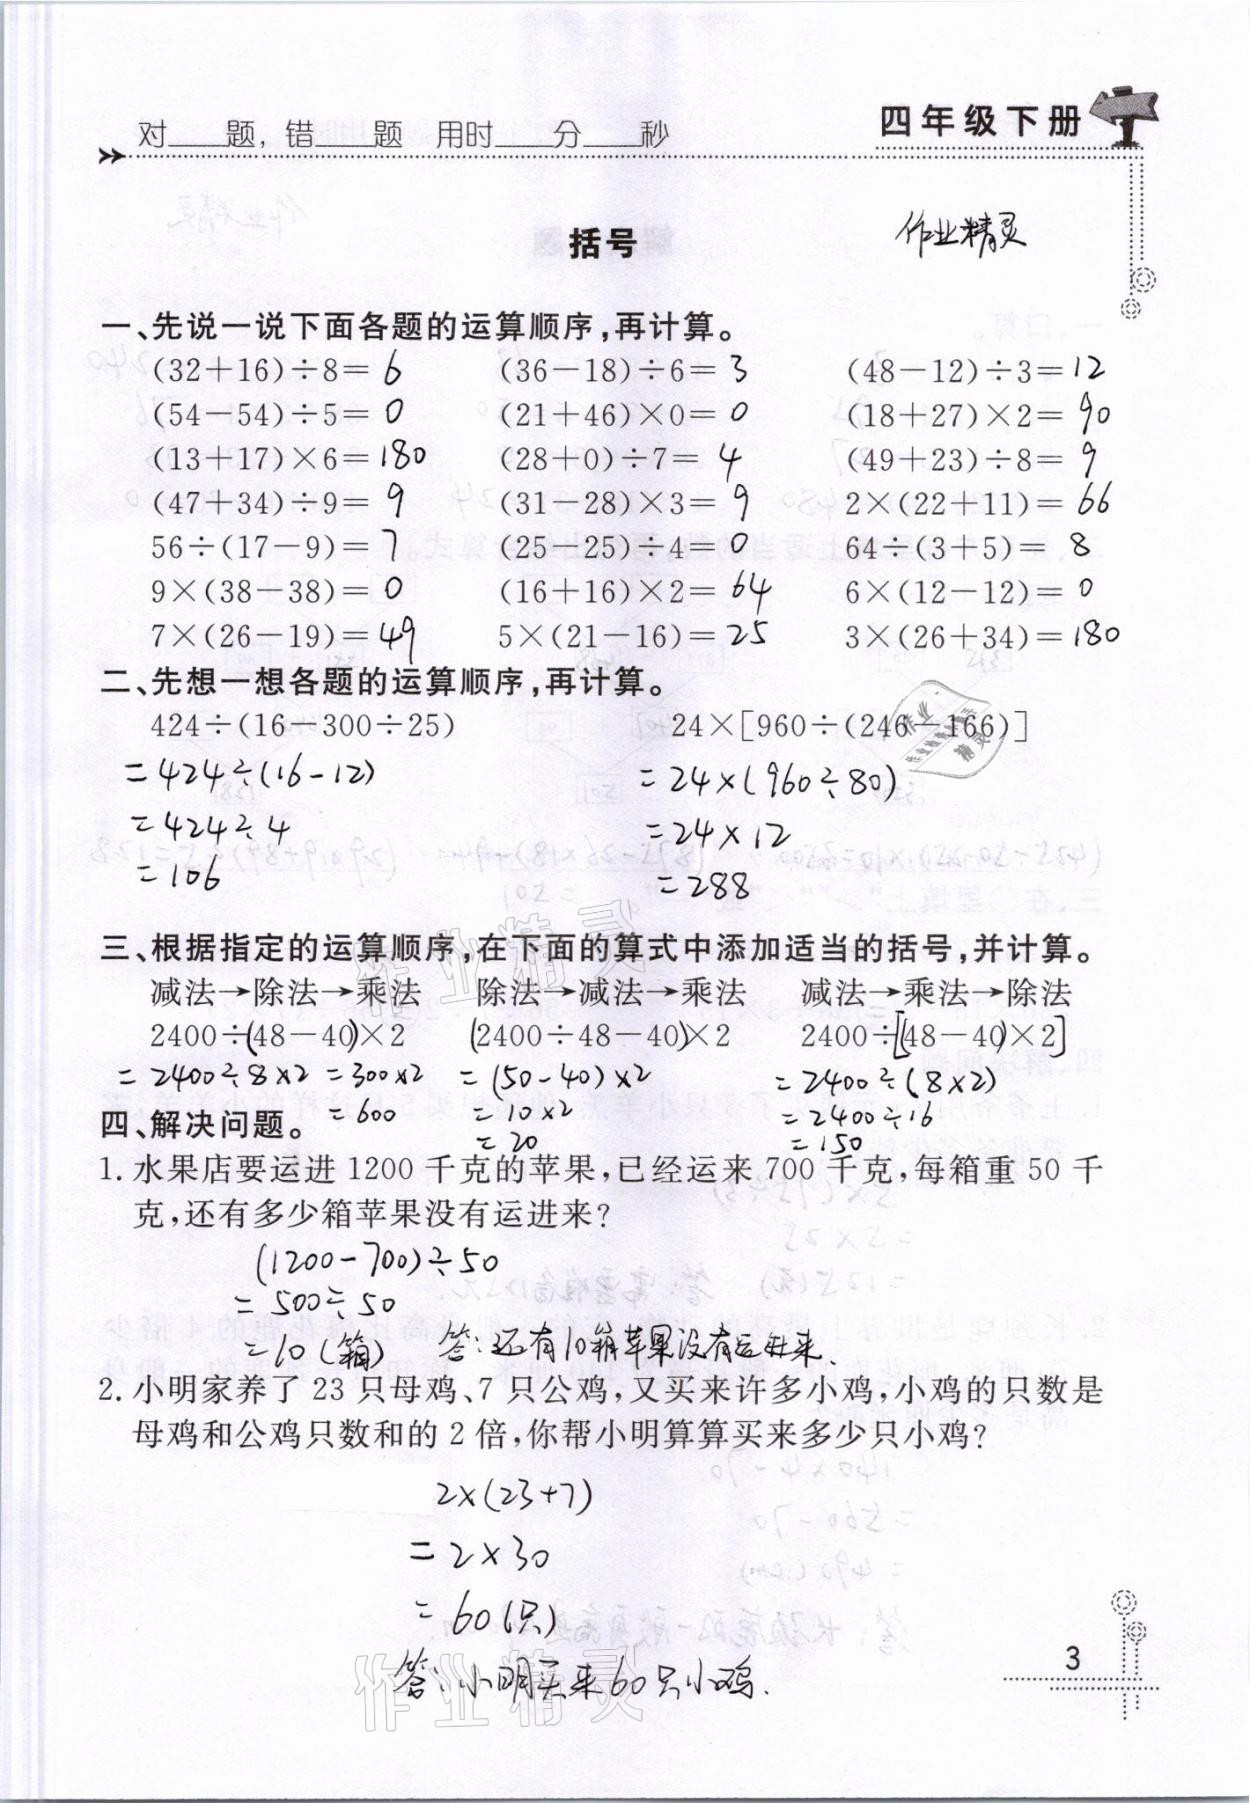 对____题,错____题 用时____分____秒
四年级下册
括号
作业精灵
一、先说一说下面各题的运算顺序,再计算。
(32+16)÷8=6 (36-18)÷6=3 (48-12)÷3=12
(54-54)÷5=0 (21+46)×0=0 (18+27)×2=90
(13+17)×6=180 (28+0)÷7=4 (49+23)÷8=9
(47+34)÷9=9 (31-28)×3=9 2×(22+11)=66
56÷(17-9)=7 (25-25)÷4=0 64÷(3+5)=8
9×(38-38)=0 (16+16)×2=64 6×(12-12)=0
7×(26-19)=49 5×(21-16)=25 3×(26+34)=180
二、先想一想各题的运算顺序,再计算。
424÷(16-300÷25) 24×[960÷(246-166)]
=424÷(16-12) =24×(960÷80)
=424÷4 =24×12
=106 =288
三、根据指定的运算顺序,在下面的算式中添加适当的括号,并计算。
减法→除法→乘法 除法→减法→乘法 减法→乘法→除法
2400÷(48-40)×2 (2400÷48-40)×2 2400÷[(48-40)×2]
=2400÷8×2=300×2 =(50-40)×2 =2400÷(8×2)
=600 =10×2 =2400÷16
=20 =150
四、解决问题。
1. 水果店要运进 1200 千克的苹果,已经运来 700 千克,每箱重 50 千
克,还有多少箱苹果没有运进来?
(1200-700)÷50
=500÷50
=10(箱) 答:还有10箱苹果没有运进来.
2. 小明家养了 23 只母鸡、7 只公鸡,又买来许多小鸡,小鸡的只数是
母鸡和公鸡只数和的 2 倍,你帮小明算算买来多少只小鸡?
2×(23+7)
=2×30
=60(只)
答:小明买来60只小鸡.
作业精灵
3